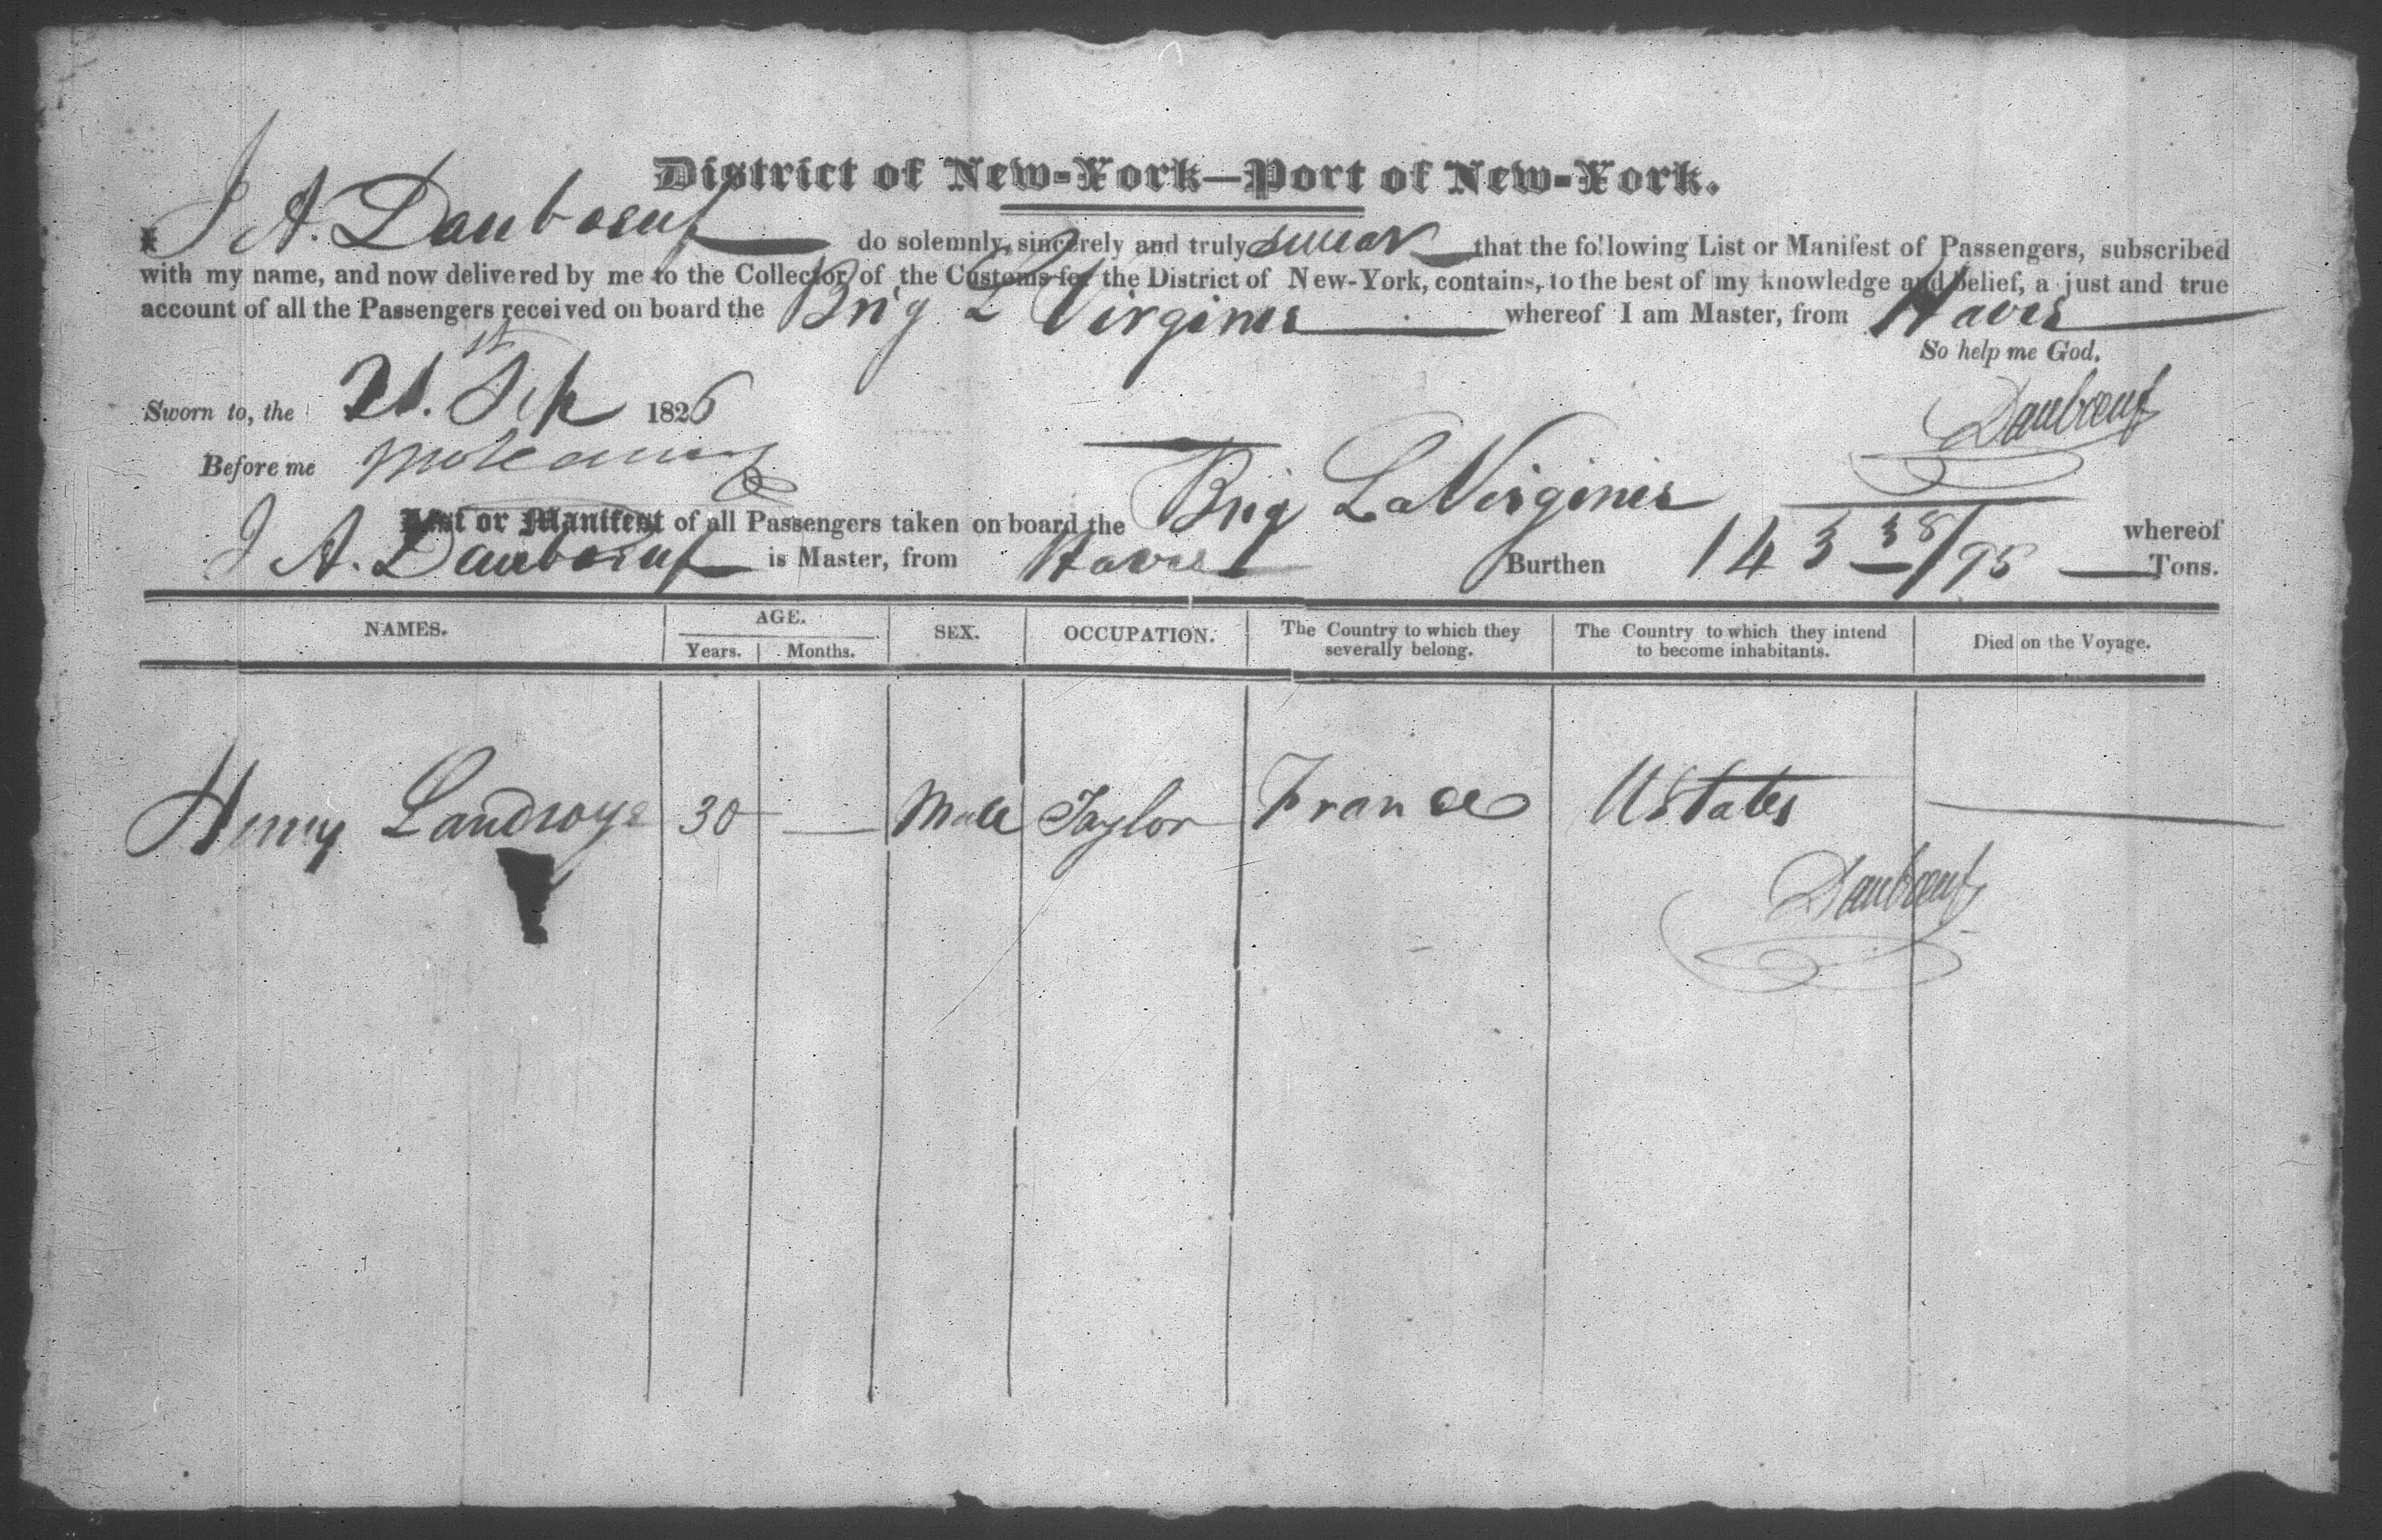 District of New-York—Port of New-York.
I J A. Dauboeuf do solemnly, sincerely and truly swear that the following List or Manifest of Passengers, subscribed
with my name, and now delivered by me to the Collector of the Customs for the District of New-York, contains, to the best of my knowledge and belief, a just and true
account of all the Passengers received on board the Brig L Virginis whereof I am Master, from Havre
So help me God.
Sworn to, the 21.st Sep 1826
Dauboeuf
Before me
List or Manifest of all Passengers taken on board the Brig La Virginis whereof
J A. Dauboeuf is Master, from Havre Burthen 143 38/95 Tons.
NAMES. AGE. Years. Months. SEX. OCCUPATION. The Country to which they severally belong. The Country to which they intend to become inhabitants. Died on the Voyage.
Henry Landroye 30 — Male Taylor France UStates —
Dauboeuf